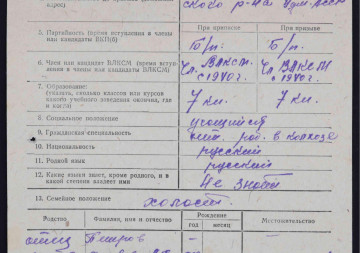 адрес)
ского р-на Удм. АССР
При приписке
При призыве
5. Партийность (время вступления в члены
или кандидаты ВКП(б)
б/п.
б/п.
6. Член или кандидат ВЛКСМ (время вступления
в члены или кандидаты ВЛКСМ)
Чл. ВЛКСМ
с 1940 г.
Чл. ВЛКСМ
с 1940 г.
7. Образование:
(указать, сколько классов или курсов
какого учебного заведения окончил, где
и когда)
7 кл.
7 кл.
8. Социальное положение
учащийся
9. Гражданская специальность
раб. в колхозе
10. Национальность
русский
11. Родной язык
русский
12. Какие языки знает, кроме родного, и в
какой степени владеет ими
Не знает
13. Семейное положение
холост.
Родство
Фамилия, имя и отчество
Рождение
год
месяц
Местожительство
отец